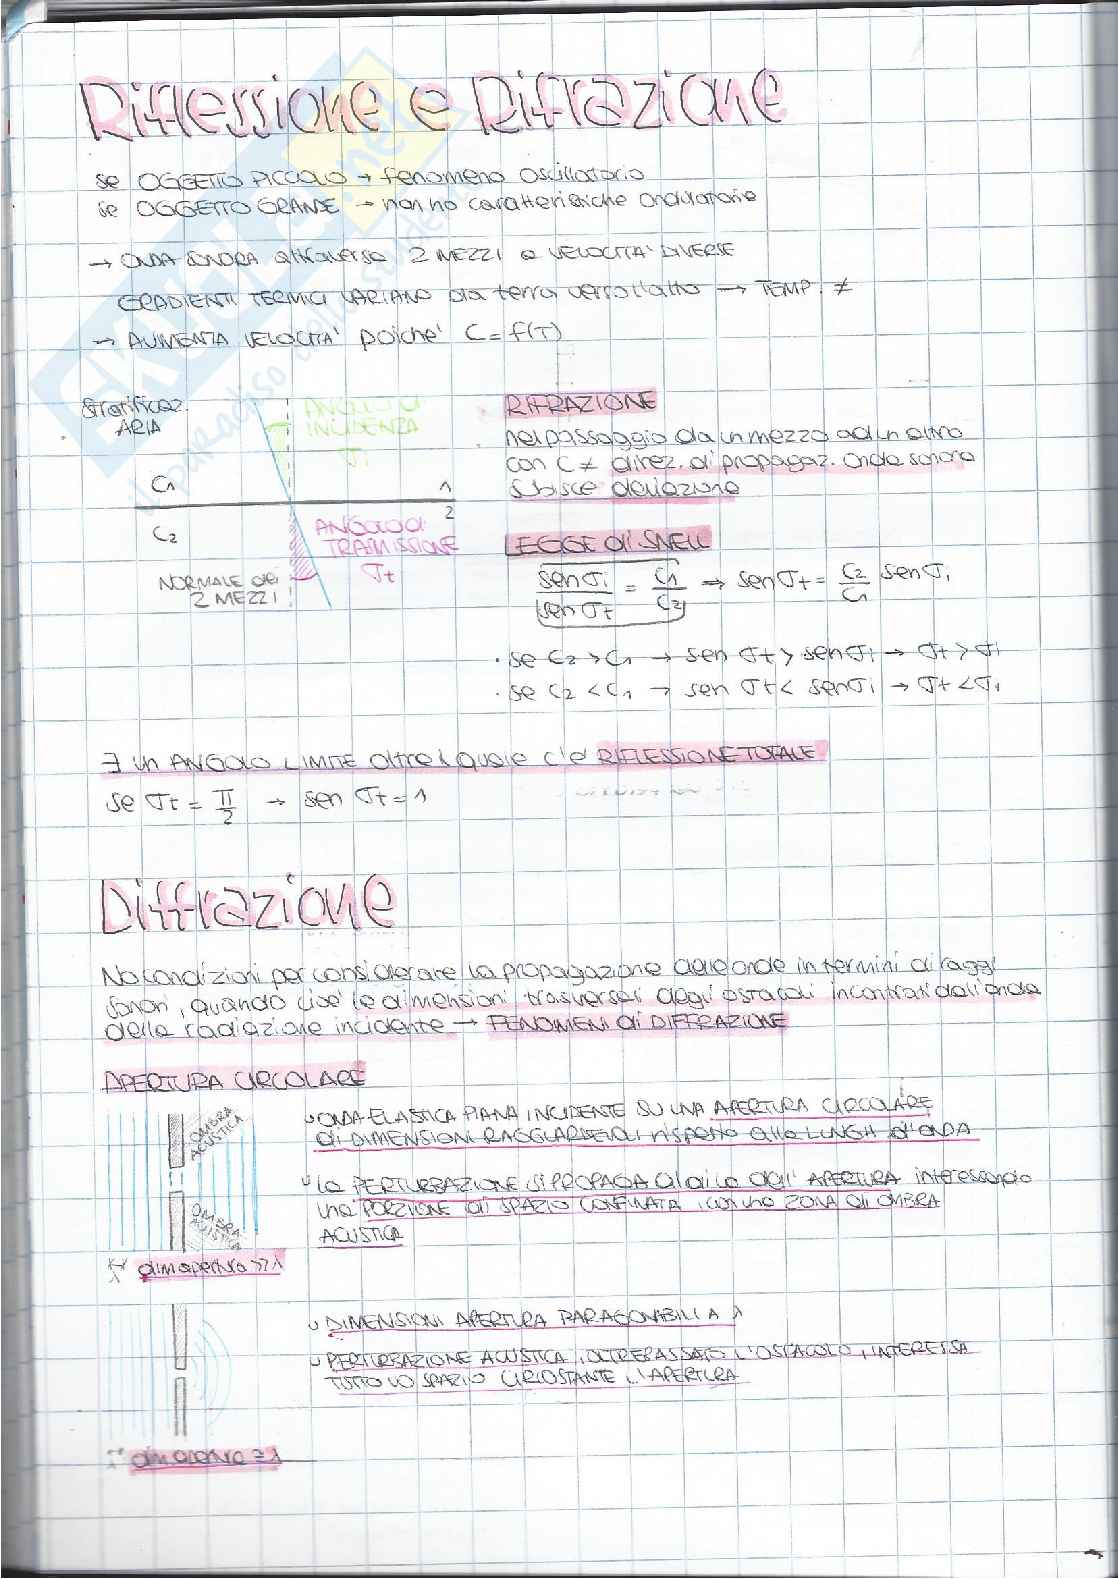 Riflessione e Rifrazione
se OGGETTO PICCOLO → fenomeno oscillatorio
se OGGETTO GRANDE → non ho caratteristiche ondulatorie
→ ONDA SONORA attraversa 2 MEZZI a VELOCITA' DIVERSE
GRADIENTI TERMICI VARIANO da terra verso l'alto → TEMP. ≠
→ AUMENTA VELOCITA' poiche' C = f(T)
Stratificaz.
ARIA
ANGOLO di
INCIDENZA
σi
C1
1
2
C2
ANGOLO di
TRASMISSIONE
σt
NORMALE dei
2 MEZZI
RIFRAZIONE
nel passaggio da un mezzo ad un altro
con C ≠ direz. di propagaz. onda sonora
subisce deviazione
LEGGE di SNELL
sen σi / sen σt = C1 / C2 → sen σt = C2 / C1 sen σi
· se C2 > C1 → sen σt > sen σi → σt > σi
· se C2 < C1 → sen σt < sen σi → σt < σi
∃ un ANGOLO LIMITE oltre il quale c'e' RIFLESSIONE TOTALE
se σt = π/2 → sen σt = 1
Diffrazione
No condizioni per considerare la propagazione delle onde in termini di raggi
sonori, quando cioe' le dimensioni trasversali degli ostacoli incontrati dall'onda
della radiazione incidente → FENOMENI di DIFFRAZIONE
APERTURA CIRCOLARE
OMBRA
ACUSTICA
OMBRA
ACUSTICA
λ
dim apertura >> λ
ONDA ELASTICA PIANA INCIDENTE SU UNA APERTURA CIRCOLARE
di DIMENSIONI RAGGUARDEVOLI rispetto alla LUNGH d'ONDA
la PERTURBAZIONE SI PROPAGA al di là dell'APERTURA interessando
una PORZIONE di SPAZIO CONFINATA, con una ZONA di OMBRA
ACUSTICA
dim apertura ≅ λ
DIMENSIONI APERTURA PARAGONABILI A λ
PERTURBAZIONE ACUSTICA, OLTREPASSATO L'OSTACOLO, INTERESSA
TUTTO LO SPAZIO CIRCOSTANTE L'APERTURA